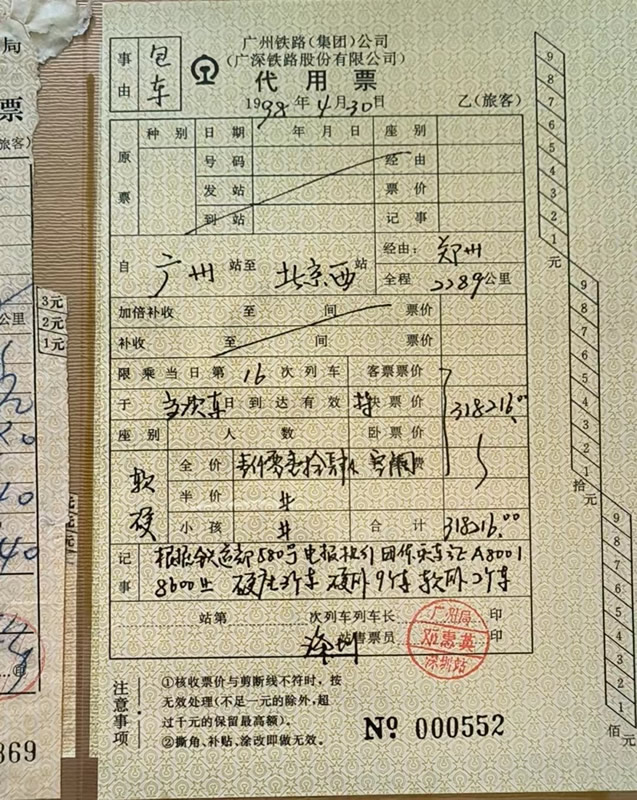 局
票
旅客）
公里
3元
2元
1元
869
事由
包车
广州铁路(集团)公司
(广深铁路股份有限公司)
代用票
1998年4月30日
乙(旅客)
原票
种别 日期 年月日 座别
号码 经由
发站 票价
到站 记事
自 广州 站至 北京西 站
经由： 郑州
全程 2289公里
加倍补收 至 间 票价
补收 至 间 票价
限乘当日第 16 次列车 客票票价
于 当次车 日到达有效 特快票价 318216.00
座别 人数 卧票价
软硬
全价 壹仟零壹拾肆人 空调费
半价 #
小孩 # 合计 318216.00
记事
根据铁运部580号电报
硬座3车 硬卧9车 软卧2车
站第 次列车列车长 印
深圳 站售票员 印
广州局
邓惠英
深圳站
注意事项
①核收票价与剪断线不符时，按
无效处理(不足一元的除外，超
过千元的保留最高额)。
②撕角、补贴、涂改即做无效。
№ 000552
9
8
7
6
5
4
3
2
1
元
9
8
7
6
5
4
3
2
1
拾元
9
8
7
6
5
4
3
2
1
佰元